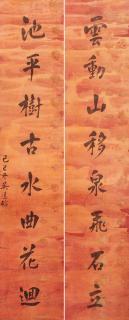 雲動山移泉飛石立
池平樹古水曲花迴